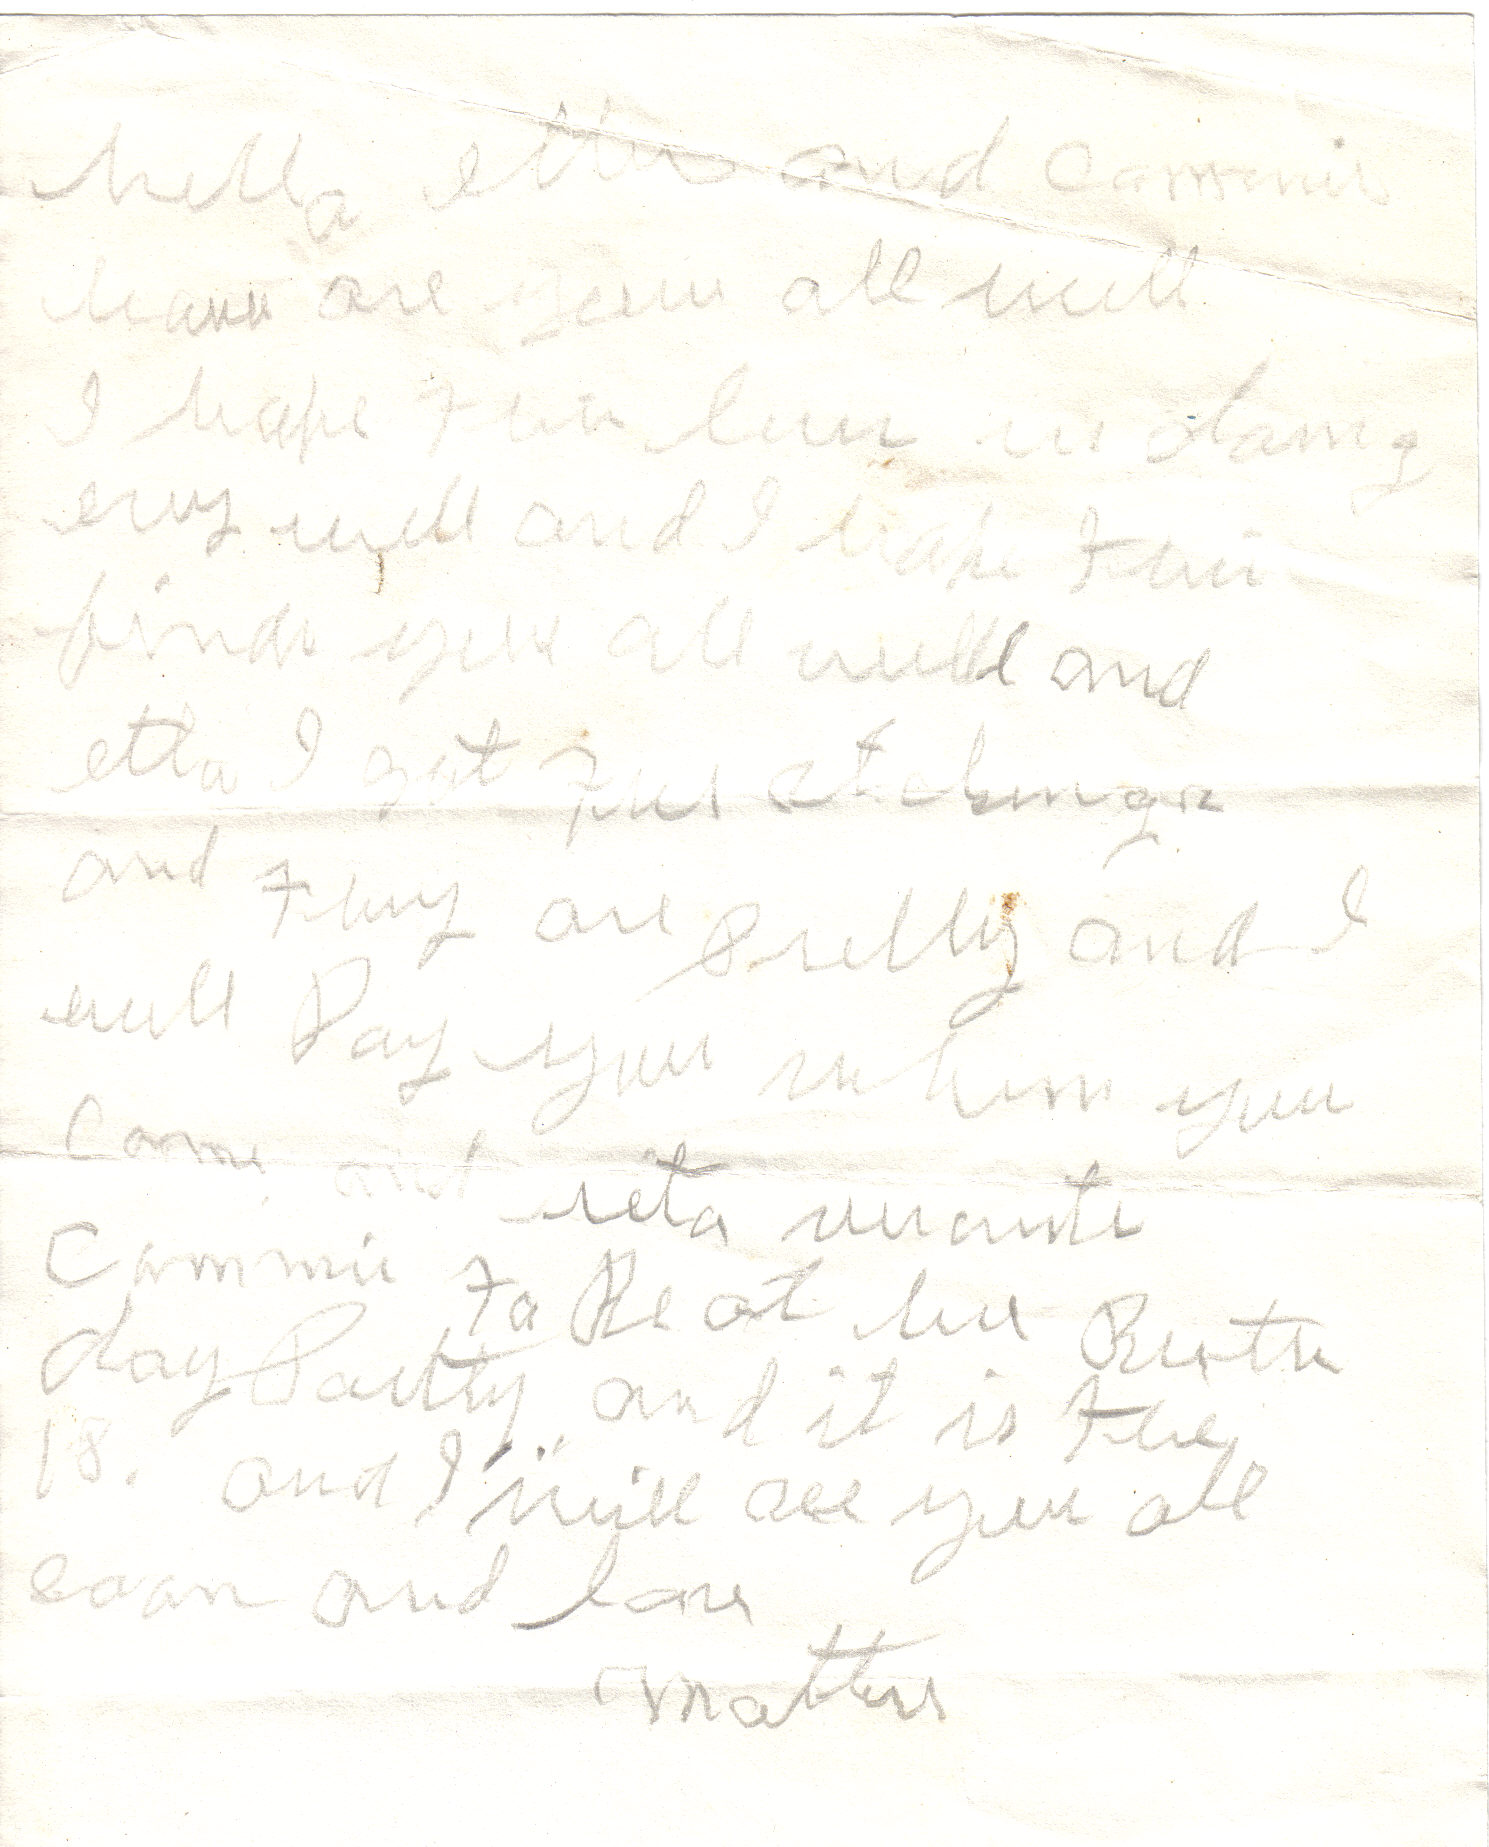 hello etta and Cammie
how are you all well
I hope
very well and I hope this
finds you all well and
etta I got
and they are Pretty and I
will Pay you when you
Come and reta
Cammie to Be at her Birth
day Party and it is the
18. and I will see you all
soon and love
mother